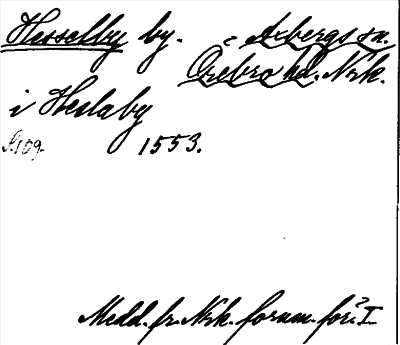 Hesselby by. Axbergs sn.
Örebro hd. Nrk.
i Heslaby
S. 109. 1553.
Medd. fr. Nrk. fornm. för. I